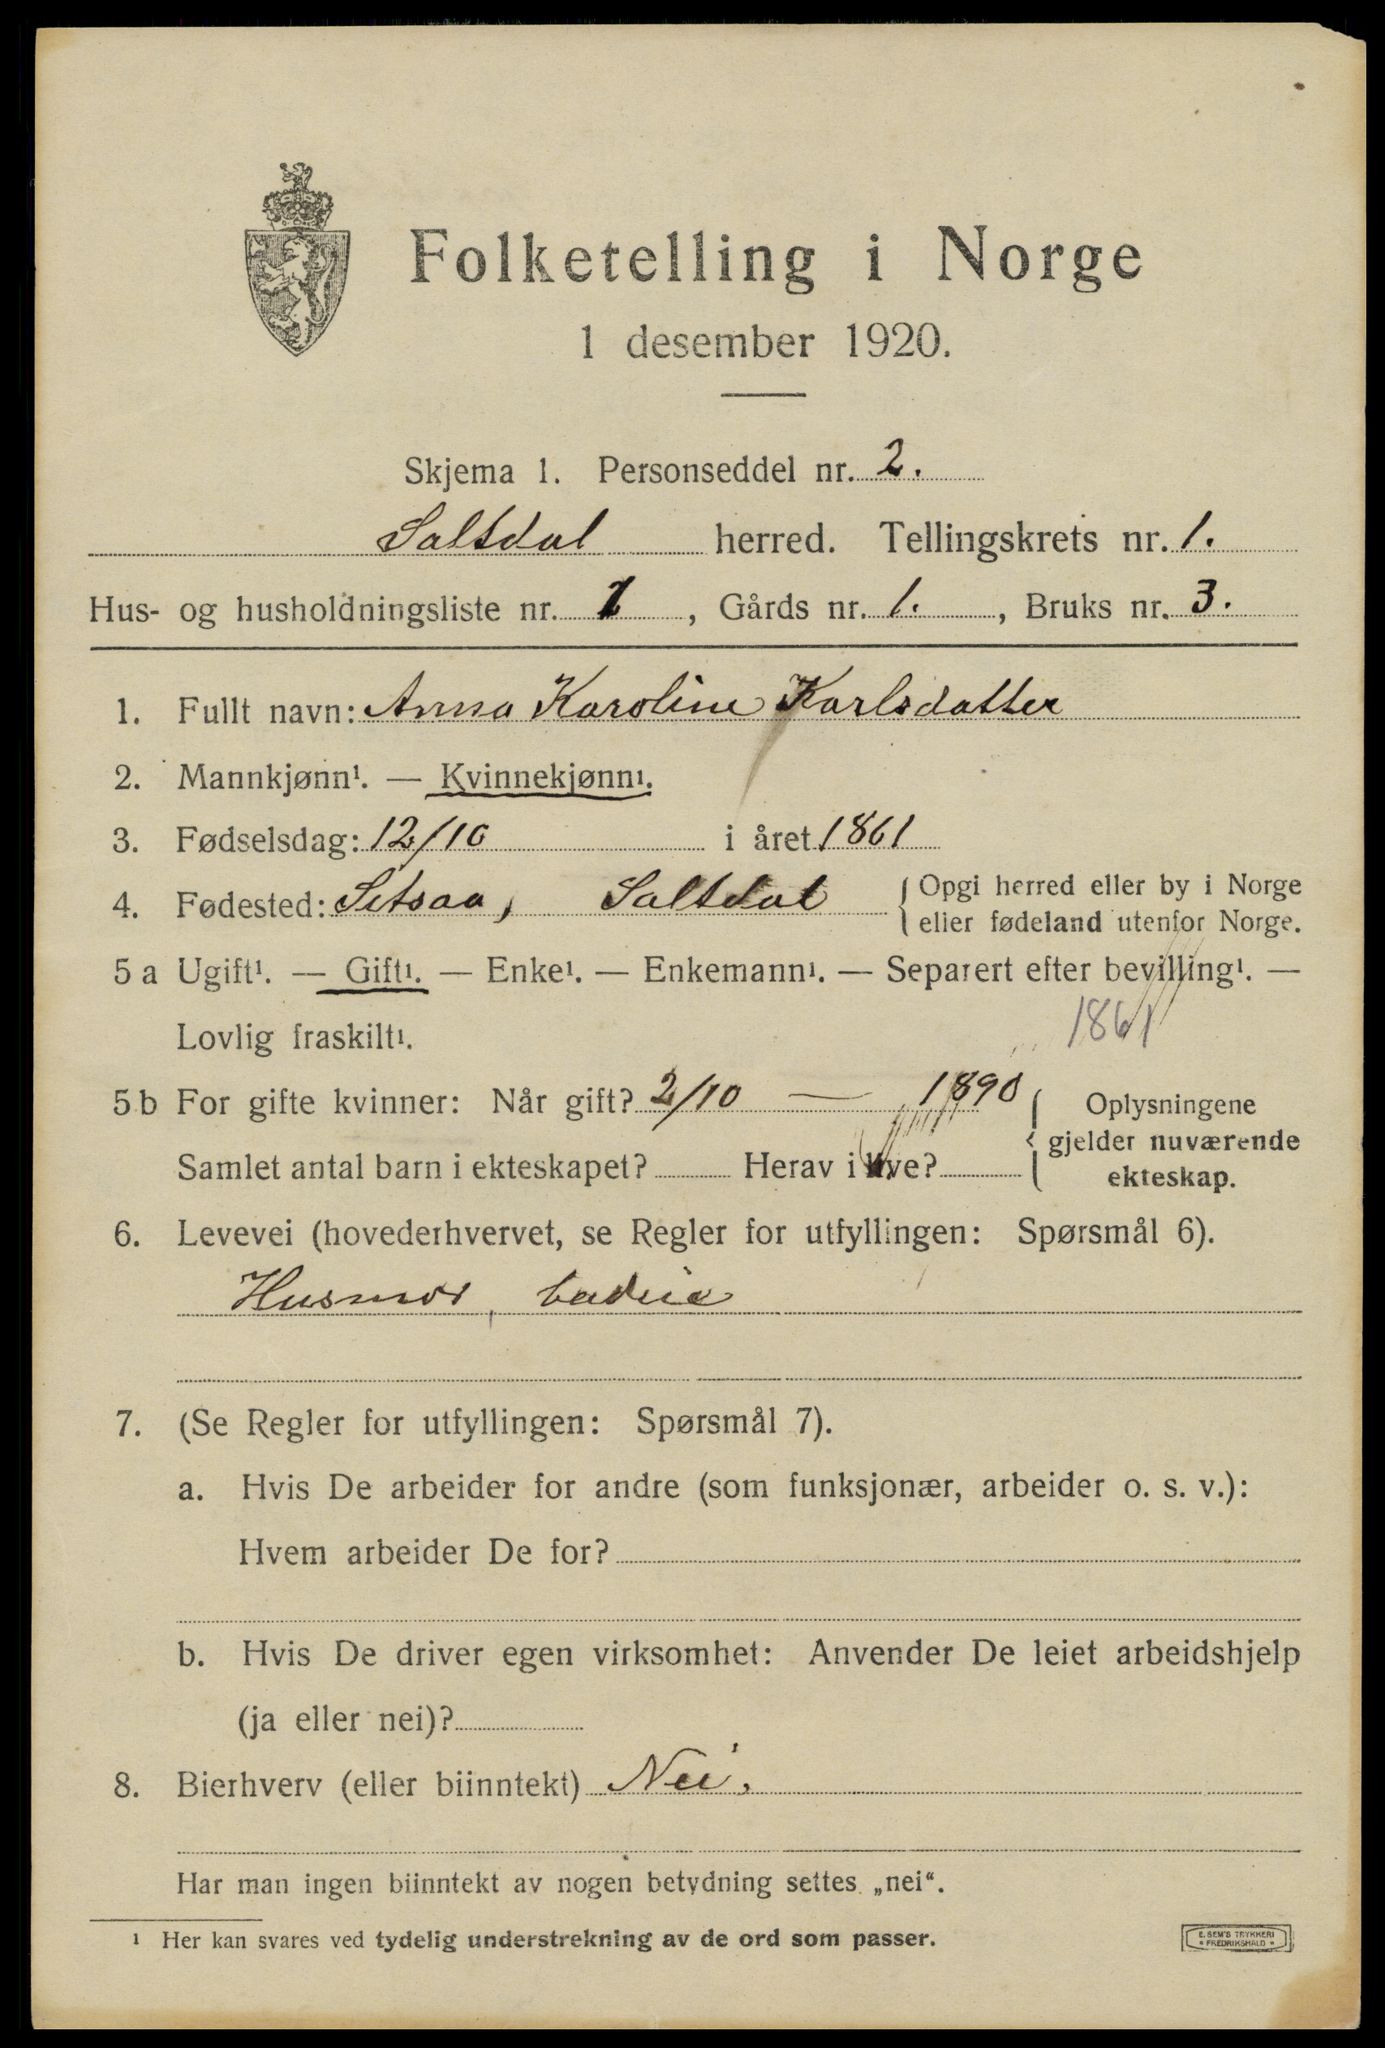 Folketelling i Norge
1 desember 1920.
Skjema 1. Personseddel nr. 2.
Saltdal herred. Tellingskrets nr. 1.
Hus- og husholdningsliste nr. 1, Gårds nr. 1., Bruks nr. 3.
1. Fullt navn: Anna Karoline Karlsdatter
2. Mannkjønn¹. — Kvinnekjønn¹.
3. Fødselsdag: 12/10 i året 1861
4. Fødested: Setsaa, Saltdal { Opgi herred eller by i Norge
eller fødeland utenfor Norge.
5 a Ugift¹. — Gift¹. — Enke¹. — Enkemann¹. — Separert efter bevilling¹. —
Lovlig fraskilt¹. 1861
5 b For gifte kvinner: Når gift? 2/10 — 1890 { Oplysningene
gjelder nuværende
Samlet antal barn i ekteskapet? Herav i live? ekteskap.
6. Levevei (hovederhvervet, se Regler for utfyllingen: Spørsmål 6).
Husmor,
7. (Se Regler for utfyllingen: Spørsmål 7).
a. Hvis De arbeider for andre (som funksjonær, arbeider o. s. v.):
Hvem arbeider De for?
b. Hvis De driver egen virksomhet: Anvender De leiet arbeidshjelp
(ja eller nei)?
8. Bierhverv (eller biinntekt) Nei.
Har man ingen biinntekt av nogen betydning settes „nei“.
¹ Her kan svares ved tydelig understrekning av de ord som passer.
E. SEM'S TRYKKERI
FREDRIKSHALD